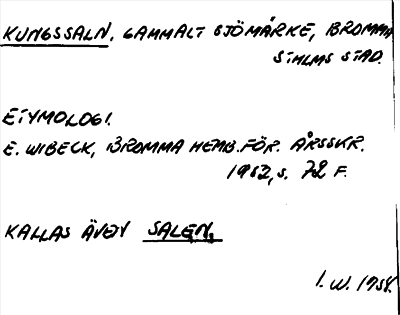 KUNGSSALN, GAMMALT SJÖMÄRKE, BROMMA
STHLMS STAD.
ETYMOLOGI.
E. WIBECK, BROMMA HEMB.FÖR. ÅRSSKR.
1952, S. 72 F.
KALLAS ÄVEN SALEN.
I. W. 1958.